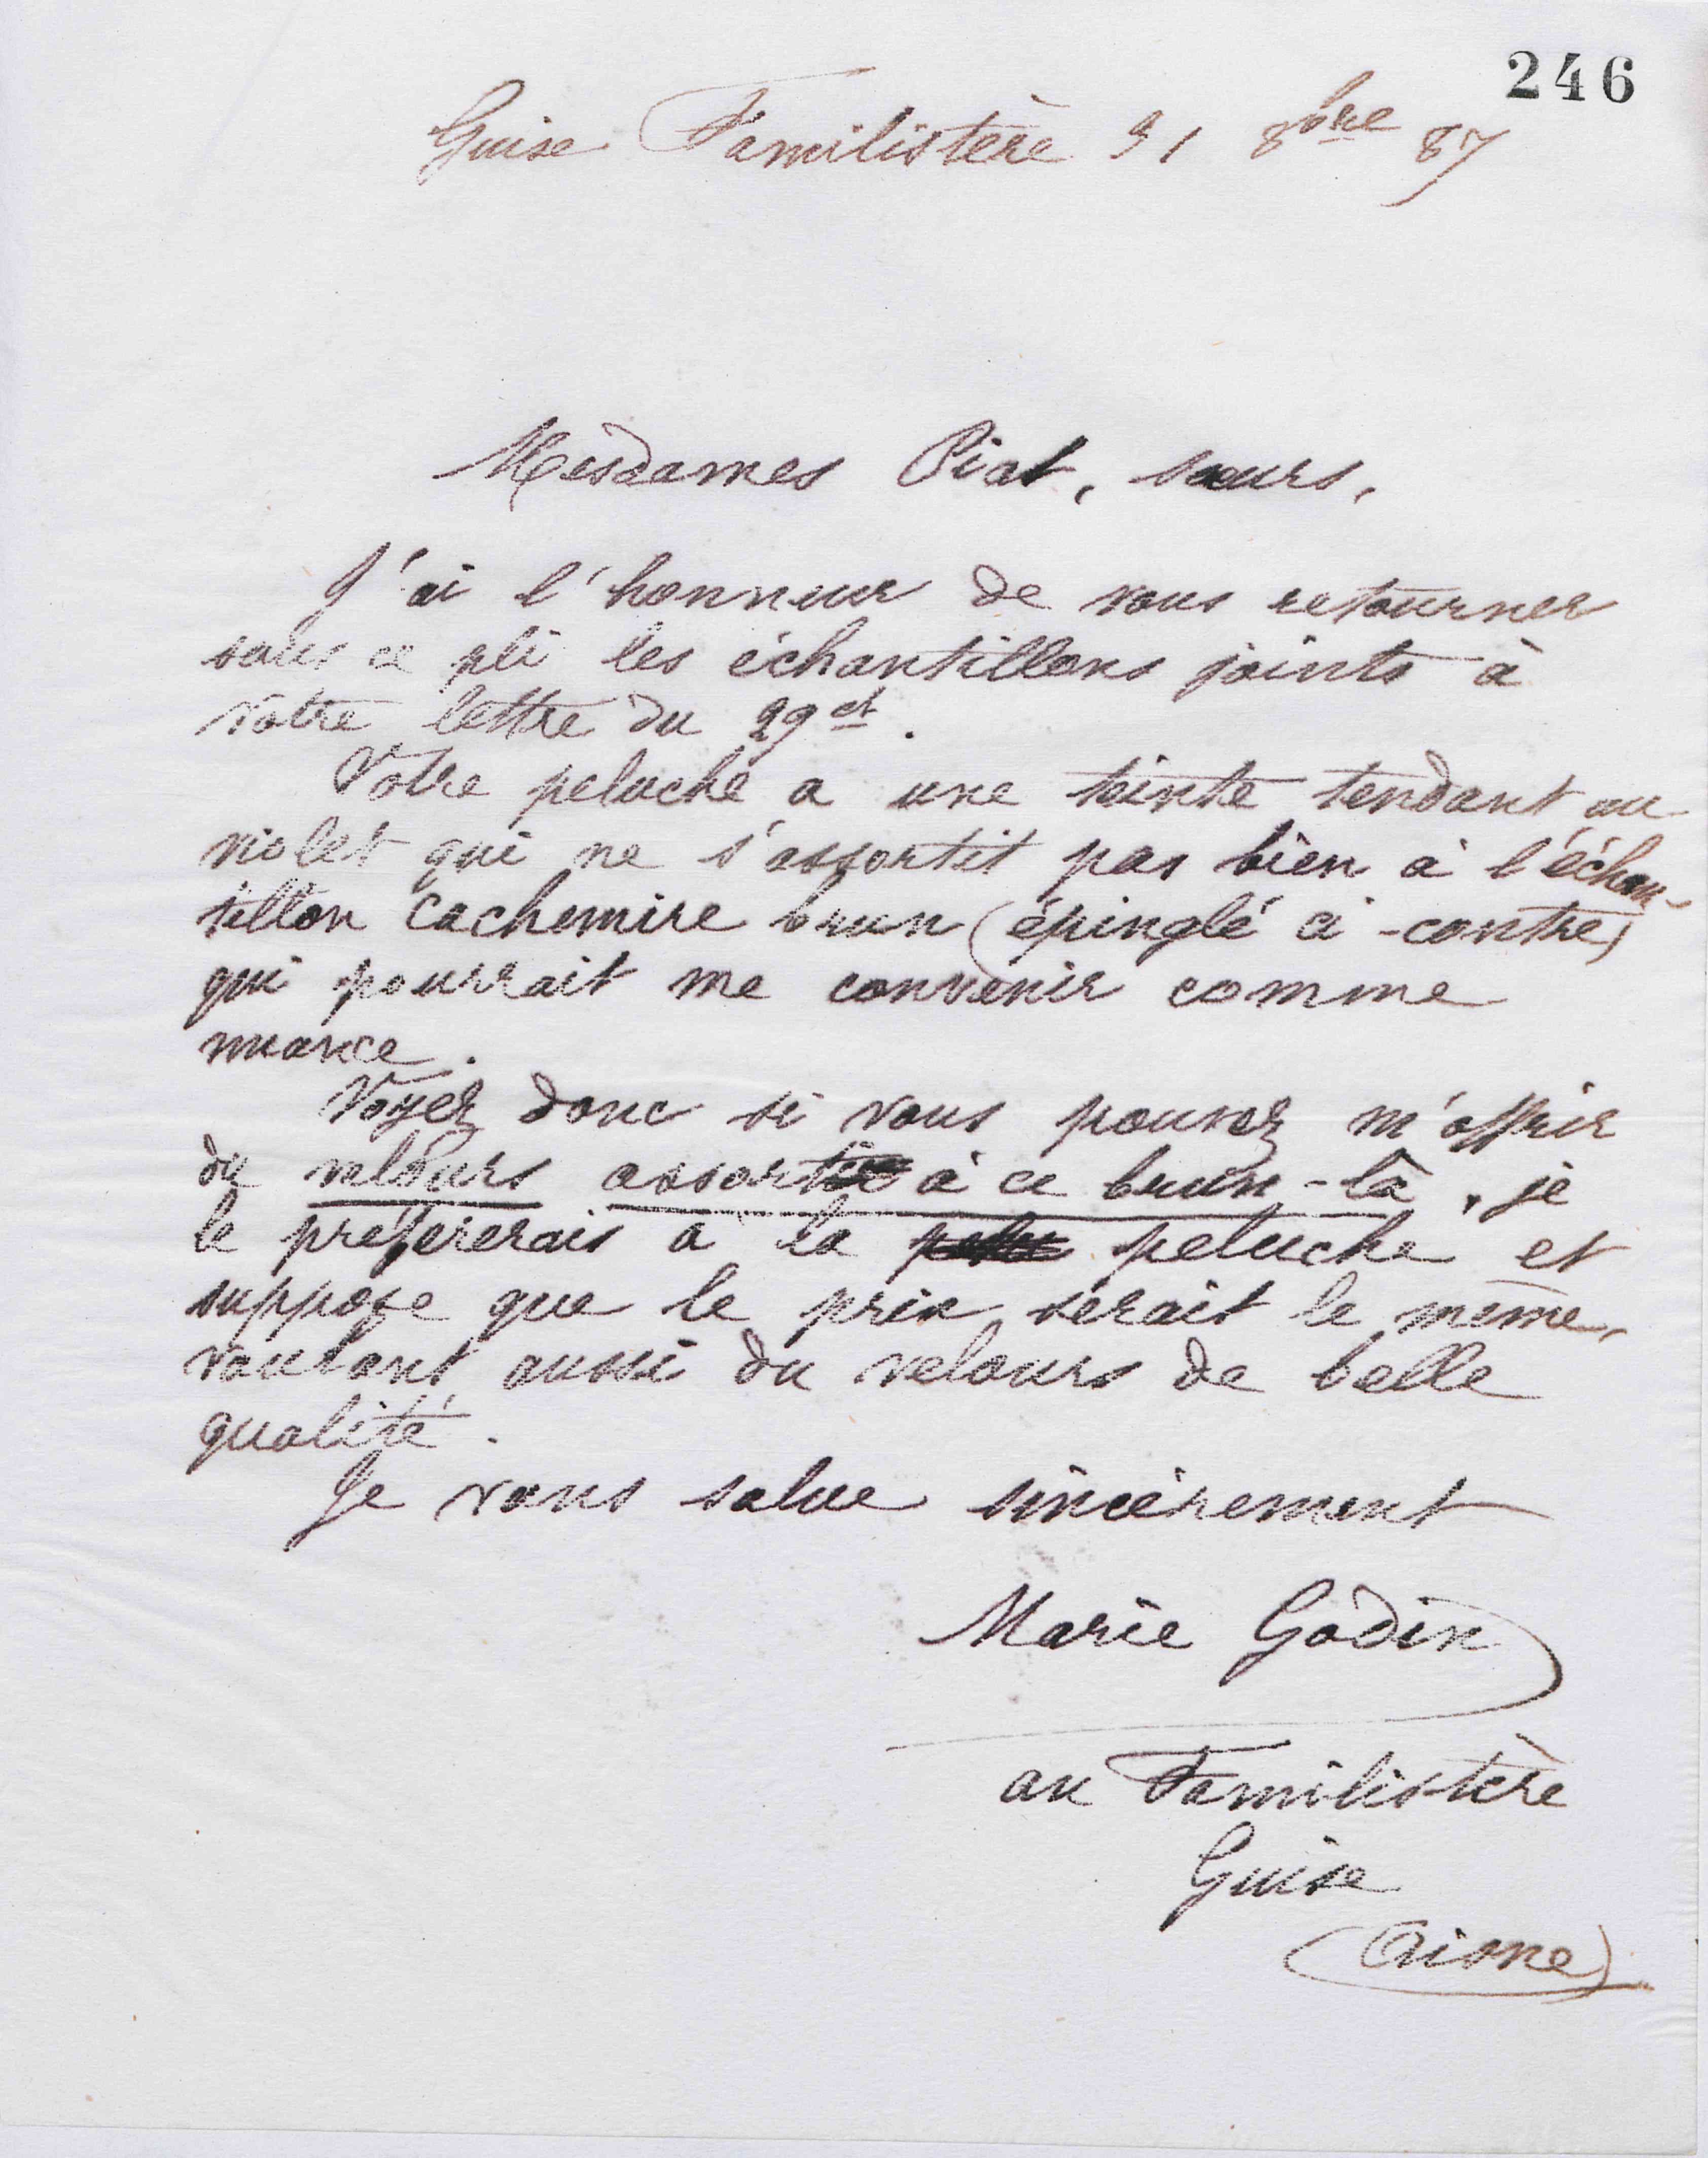 246
Guise Familistère 31 8bre 87
Mesdames Piat, sœurs,
J'ai l'honneur de vous retourner
sous ce pli les échantillons joints à
votre lettre du 29 ct.
Votre peluche a une teinte tendant au
violet qui ne s'assortit pas bien à l'échan-
tillon cachemire brun (épinglé ci-contre)
qui pourrait me convenir comme
nuance.
Voyez donc si vous pouvez m'offrir
du velours assorti à ce brun-là, je
le préfèrerais à la peluche et
suppose que le prix serait le même,
voulant aussi du velours de belle
qualité.
Je vous salue sincèrement
Marie Godin
au Familistère
Guise
(Aisne)